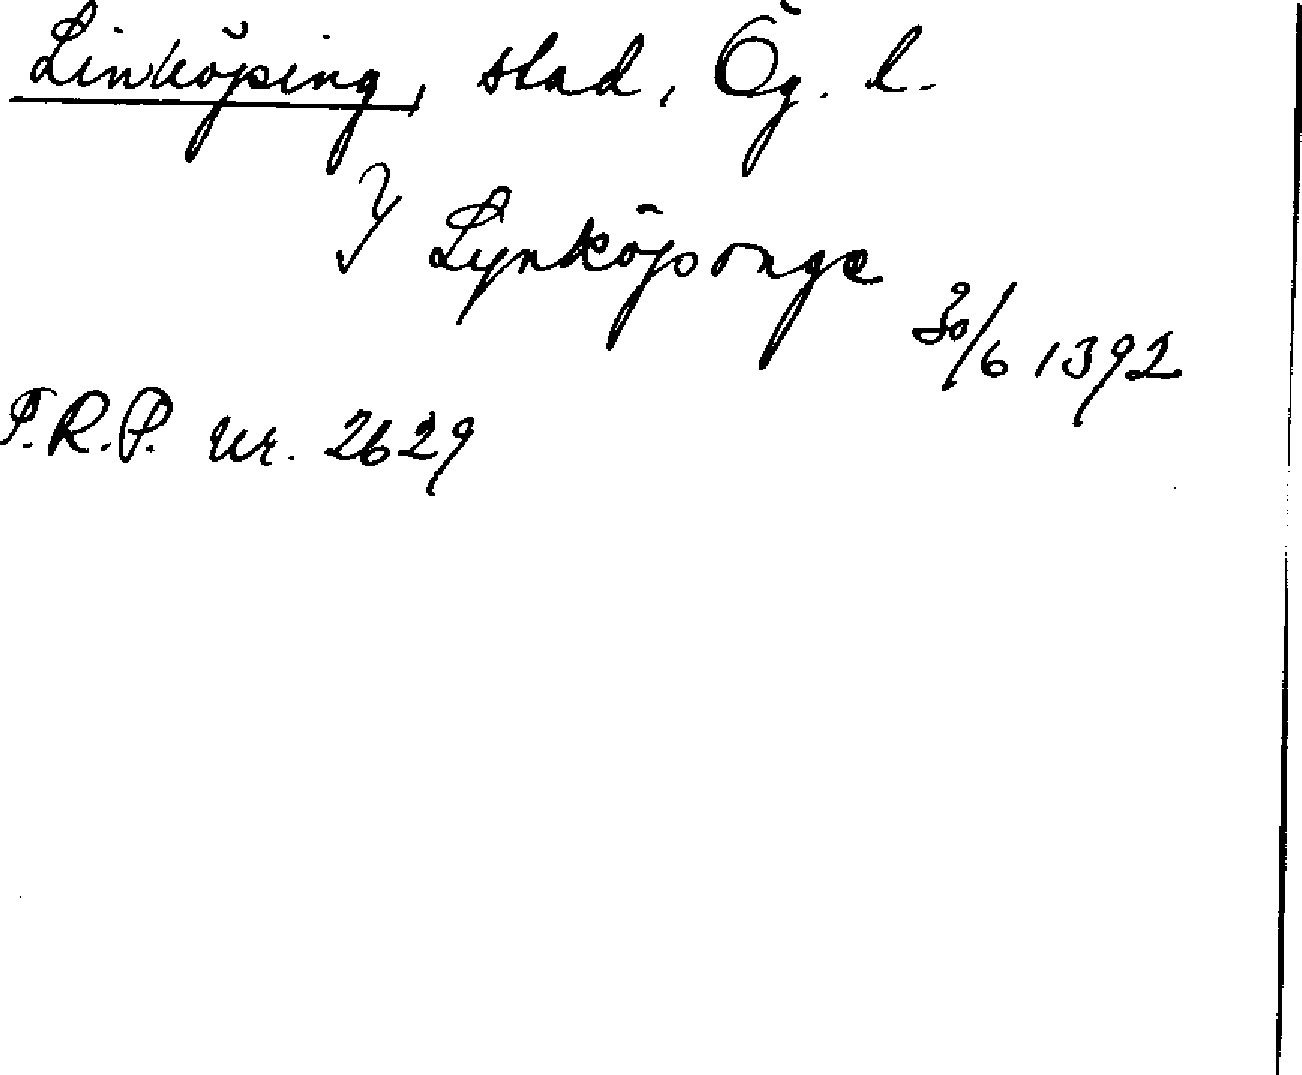 Linköping, stad, Ög. l.
Y Lynköponge
30/6 1392
P.R.P. nr. 2629